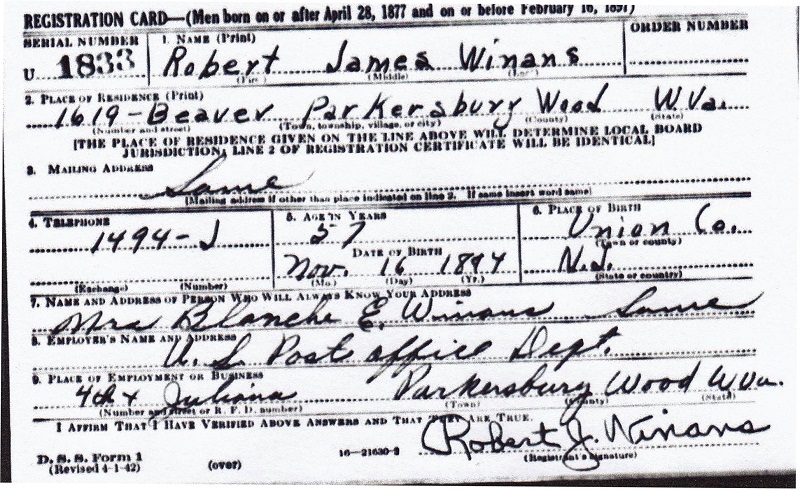 REGISTRATION CARD—(Men born on or after April 28, 1877 and on or before February 16, 1897)
SERIAL NUMBER 1. NAME (Print) ORDER NUMBER
U 1833 Robert James Winans
(First) (Middle) (Last)
2. PLACE OF RESIDENCE (Print)
1619-Beaver Parkersburg Wood W Va.
(Number and street) (Town, township, village, or city) (County) (State)
[THE PLACE OF RESIDENCE GIVEN ON THE LINE ABOVE WILL DETERMINE LOCAL BOARD
JURISDICTION; LINE 2 OF REGISTRATION CERTIFICATE WILL BE IDENTICAL]
3. MAILING ADDRESS
Same
[Mailing address if other than place indicated on line 2. If same insert word same]
4. TELEPHONE 5. AGE IN YEARS 6. PLACE OF BIRTH
1494-J 57 Union Co.
(Town or county)
DATE OF BIRTH
Nov. 16 1894 N.J.
(Exchange) (Number) (Mo.) (Day) (Yr.) (State or country)
7. NAME AND ADDRESS OF PERSON WHO WILL ALWAYS KNOW YOUR ADDRESS
Mrs Blanche E. Winans Same
8. EMPLOYER'S NAME AND ADDRESS
U. S. Post office Dept.
9. PLACE OF EMPLOYMENT OR BUSINESS
4th & Juliana Parkersburg Wood W Va.
(Number and street or R. F. D. number) (Town) (County) (State)
I AFFIRM THAT I HAVE VERIFIED ABOVE ANSWERS AND THAT THEY ARE TRUE.
Robert J. Winans
D. S. S. Form 1 16—21630-2 (Registrant's signature)
(Revised 4-1-42) (over)